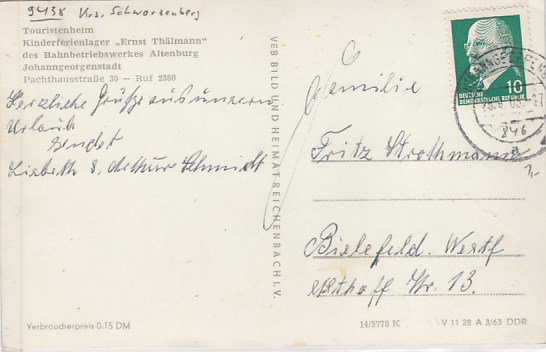 9438 Krs. Schwarzenberg
Touristenheim
Kinderferienlager „Ernst Thälmann"
des Bahnbetriebswerkes Altenburg
Johanngeorgenstadt
Pachthausstraße 30 – Ruf 2380
Herzliche Grüße aus unserm
Urlaub
sendet
Lisbeth & Arthur Schmidt
Verbraucherpreis 0.15 DM
VEB BILD UND HEIMAT REICHENBACH i. V.
10
DEUTSCHE
DEMOKRATISCHE REPUBLIK
846
a
Familie
Fritz Strothmann
Bielefeld. Westf
Nr. 13.
14/5778 K
V 11 28 A 3/63 DDR